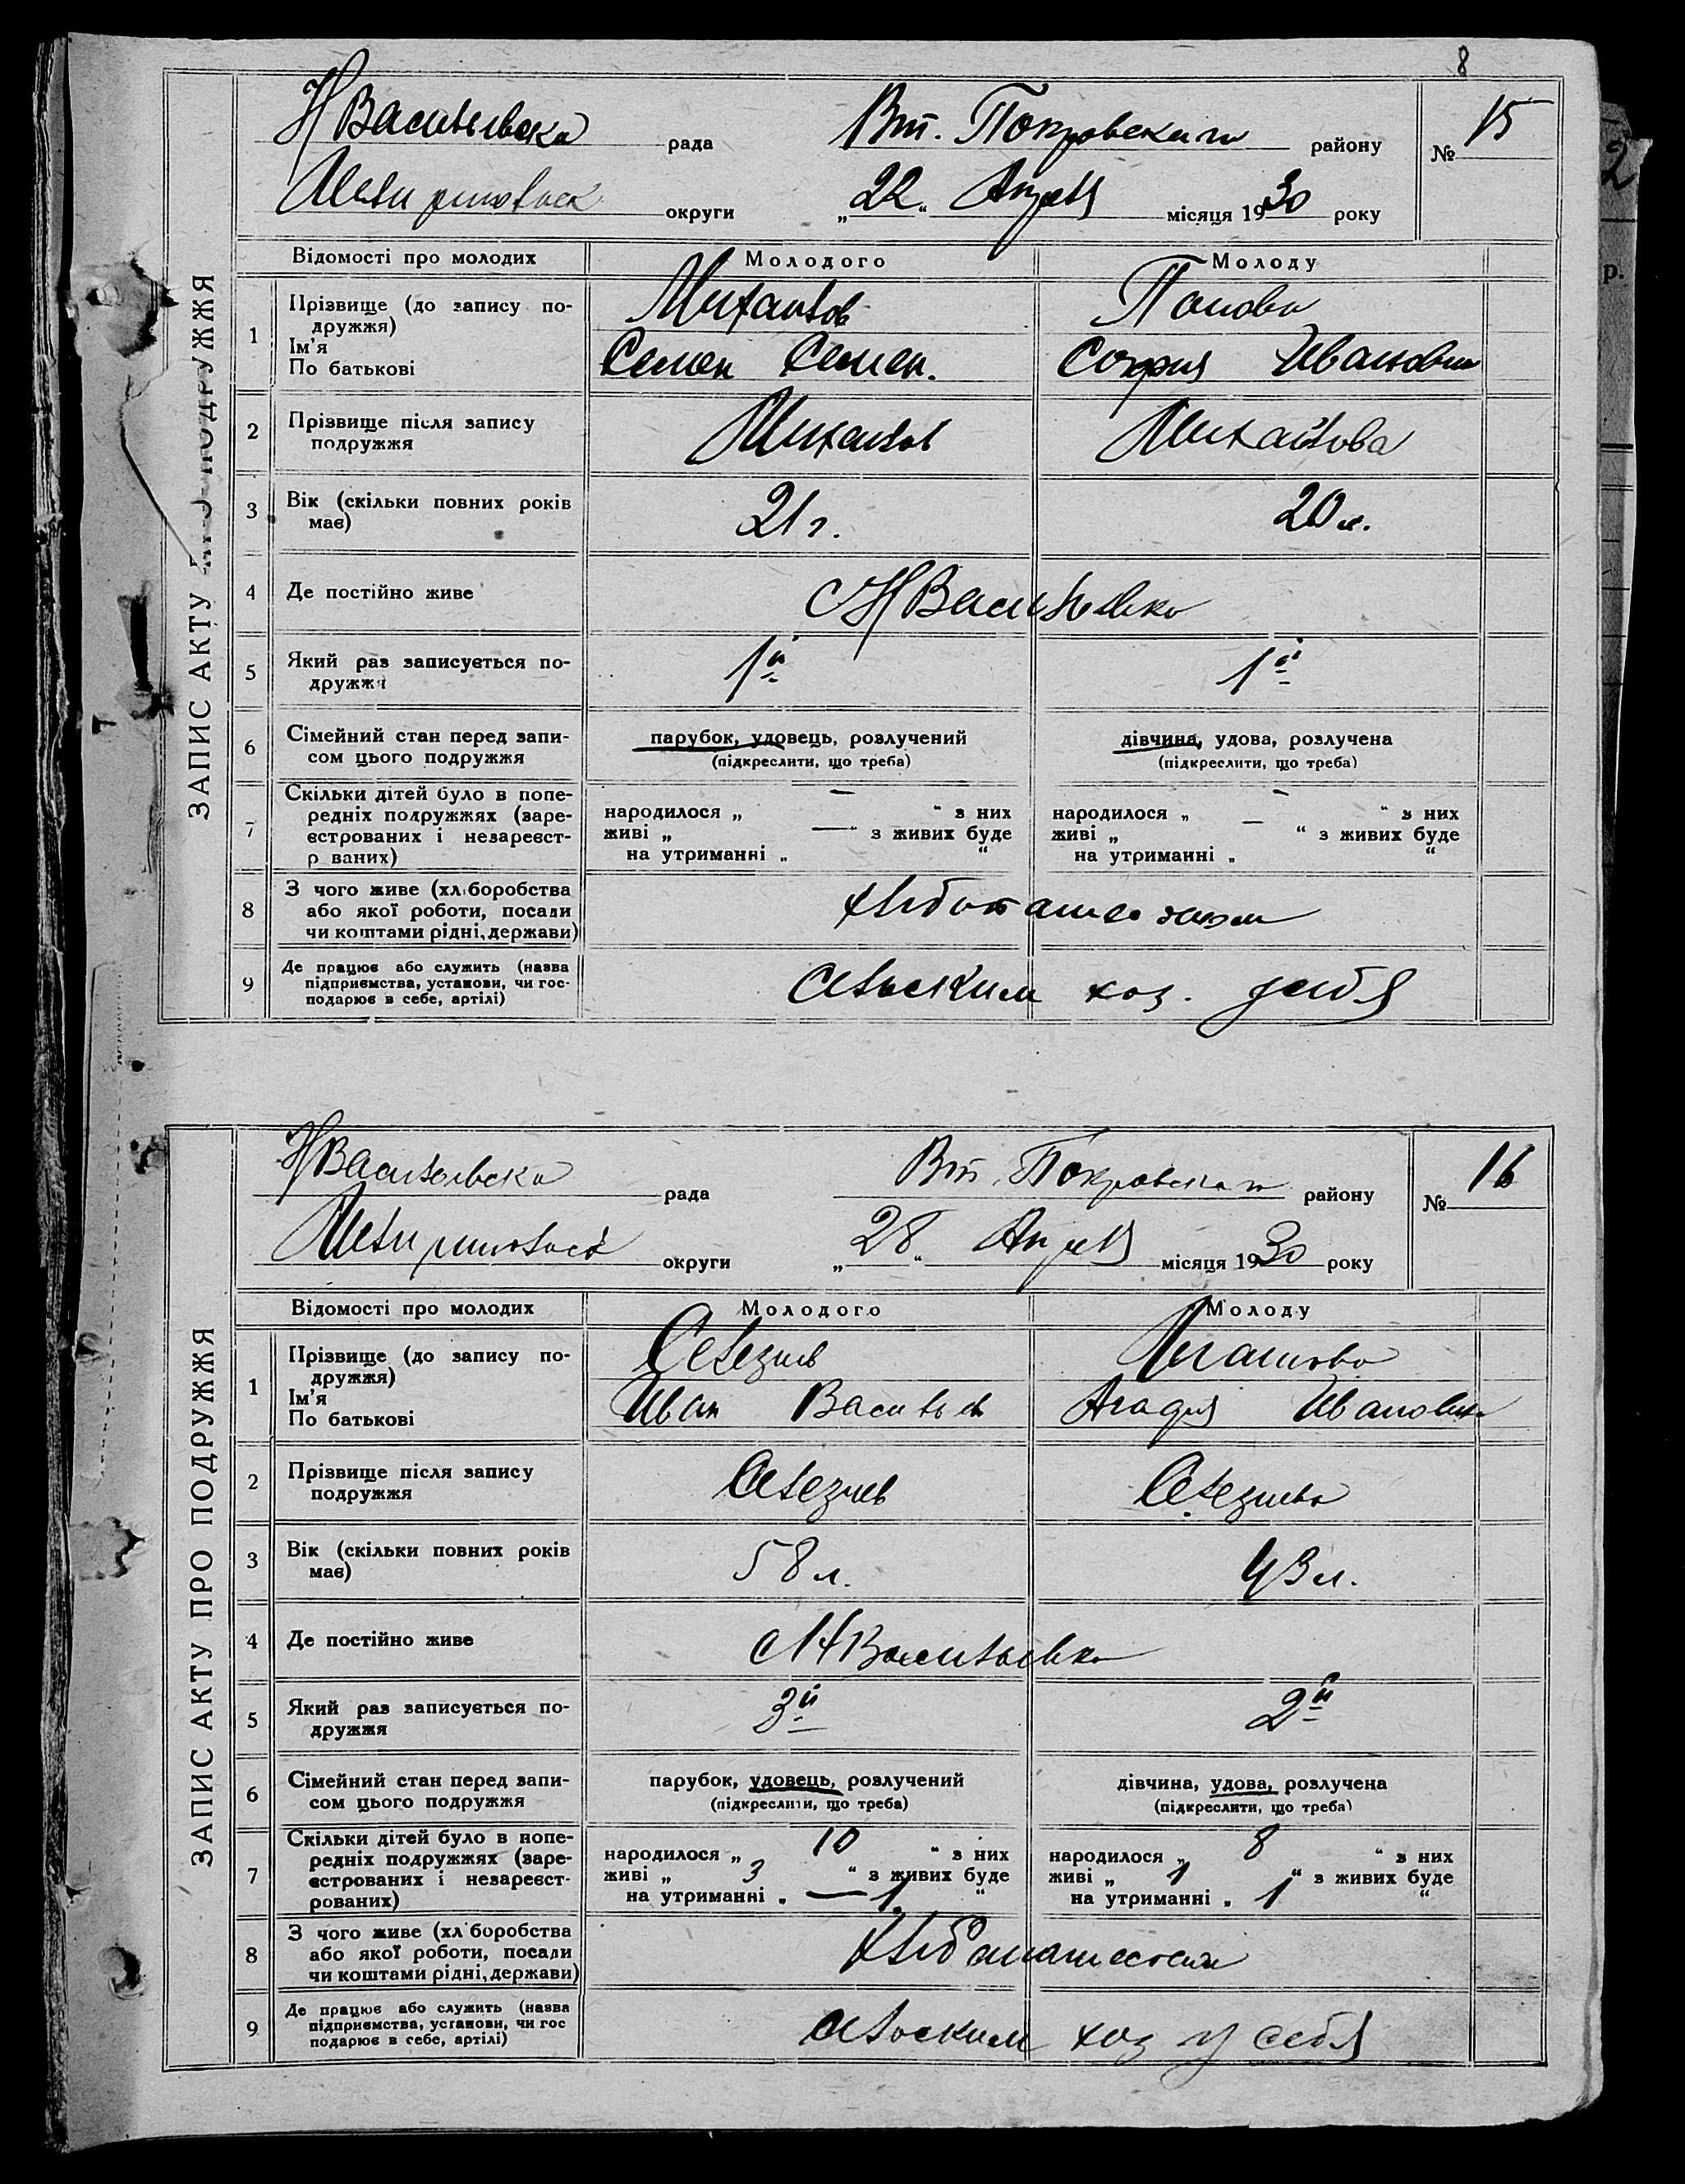 8
НВасильевска рада Вт. Покровского району № 15
Мелитопольск округи „22“ Апреля місяця 1930 року
ЗАПИС АКТУ ПОДРУЖЖЯ
Відомості про молодих Молодого Молоду
1 Прізвище (до запису по- Михайлов Попова
дружжя)
Ім'я Семен Семен. София Ивановна
По батькові
2 Прізвище після запису Михайлов Михайлова
подружжя
3 Вік (скільки повних років 21 г. 20 л.
має)
4 Де постійно живе с НВасильевка
5 Який раз записується по- 1й 1й
дружжя
6 Сімейний стан перед запи- парубок, удовець, розлучений дівчина, удова, розлучена
сом цього подружжя (підкреслити, що треба) (підкреслити, що треба)
7 Скільки дітей було в попе- — —
редніх подружжях (заре- народилося „ “ з них народилося „ — “ з них
єстрованих і незареєст- живі „ — “ з живих буде живі „ “ з живих буде
р ваних) на утриманні „ “ на утриманні „ “
8 З чого живе (хл боробства хлебопашеством
або якої роботи, посади
чи коштами рідні, держави)
9 Де працює або служить (назва сельским хоз. себя
підприємства, установи, чи гос-
подарює в себе, артілі)
НВасильевска рада Вт. Покровского району № 16
Мелитопольск округи „28“ Апреля місяця 1930 року
ЗАПИС АКТУ ПРО ПОДРУЖЖЯ
Відомості про молодих Молодого Молоду
1 Прізвище (до запису по- Селезнев Игашова
дружжя)
Ім'я Иван Васильев Агафия Ивановна
По батькові
2 Прізвище після запису Селезнев Селезнева
подружжя
3 Вік (скільки повних років 58 л. 43 л.
має)
4 Де постійно живе с НВасильевка
5 Який раз записується по- 3й 2й
дружжя
6 Сімейний стан перед запи- парубок, удовець, розлучений дівчина, удова, розлучена
сом цього подружжя (підкреслити, що треба) (підкреслити, що треба)
7 Скільки дітей було в попе-
редніх подружжях (заре- народилося „ 10 “ з них народилося „ 8 “ з них
єстрованих і незареєст- живі „ 3 “ з живих буде живі „ 1 “ з живих буде
рованих) на утриманні „ — 1 “ на утриманні „ 1 “
8 З чого живе (хл боробства хлебопашеством
або якої роботи, посади
чи коштами рідні, держави)
9 Де працює або служить (назва сельским хоз у себя
підприємства, установи, чи гос
подарює в себе, артілі)